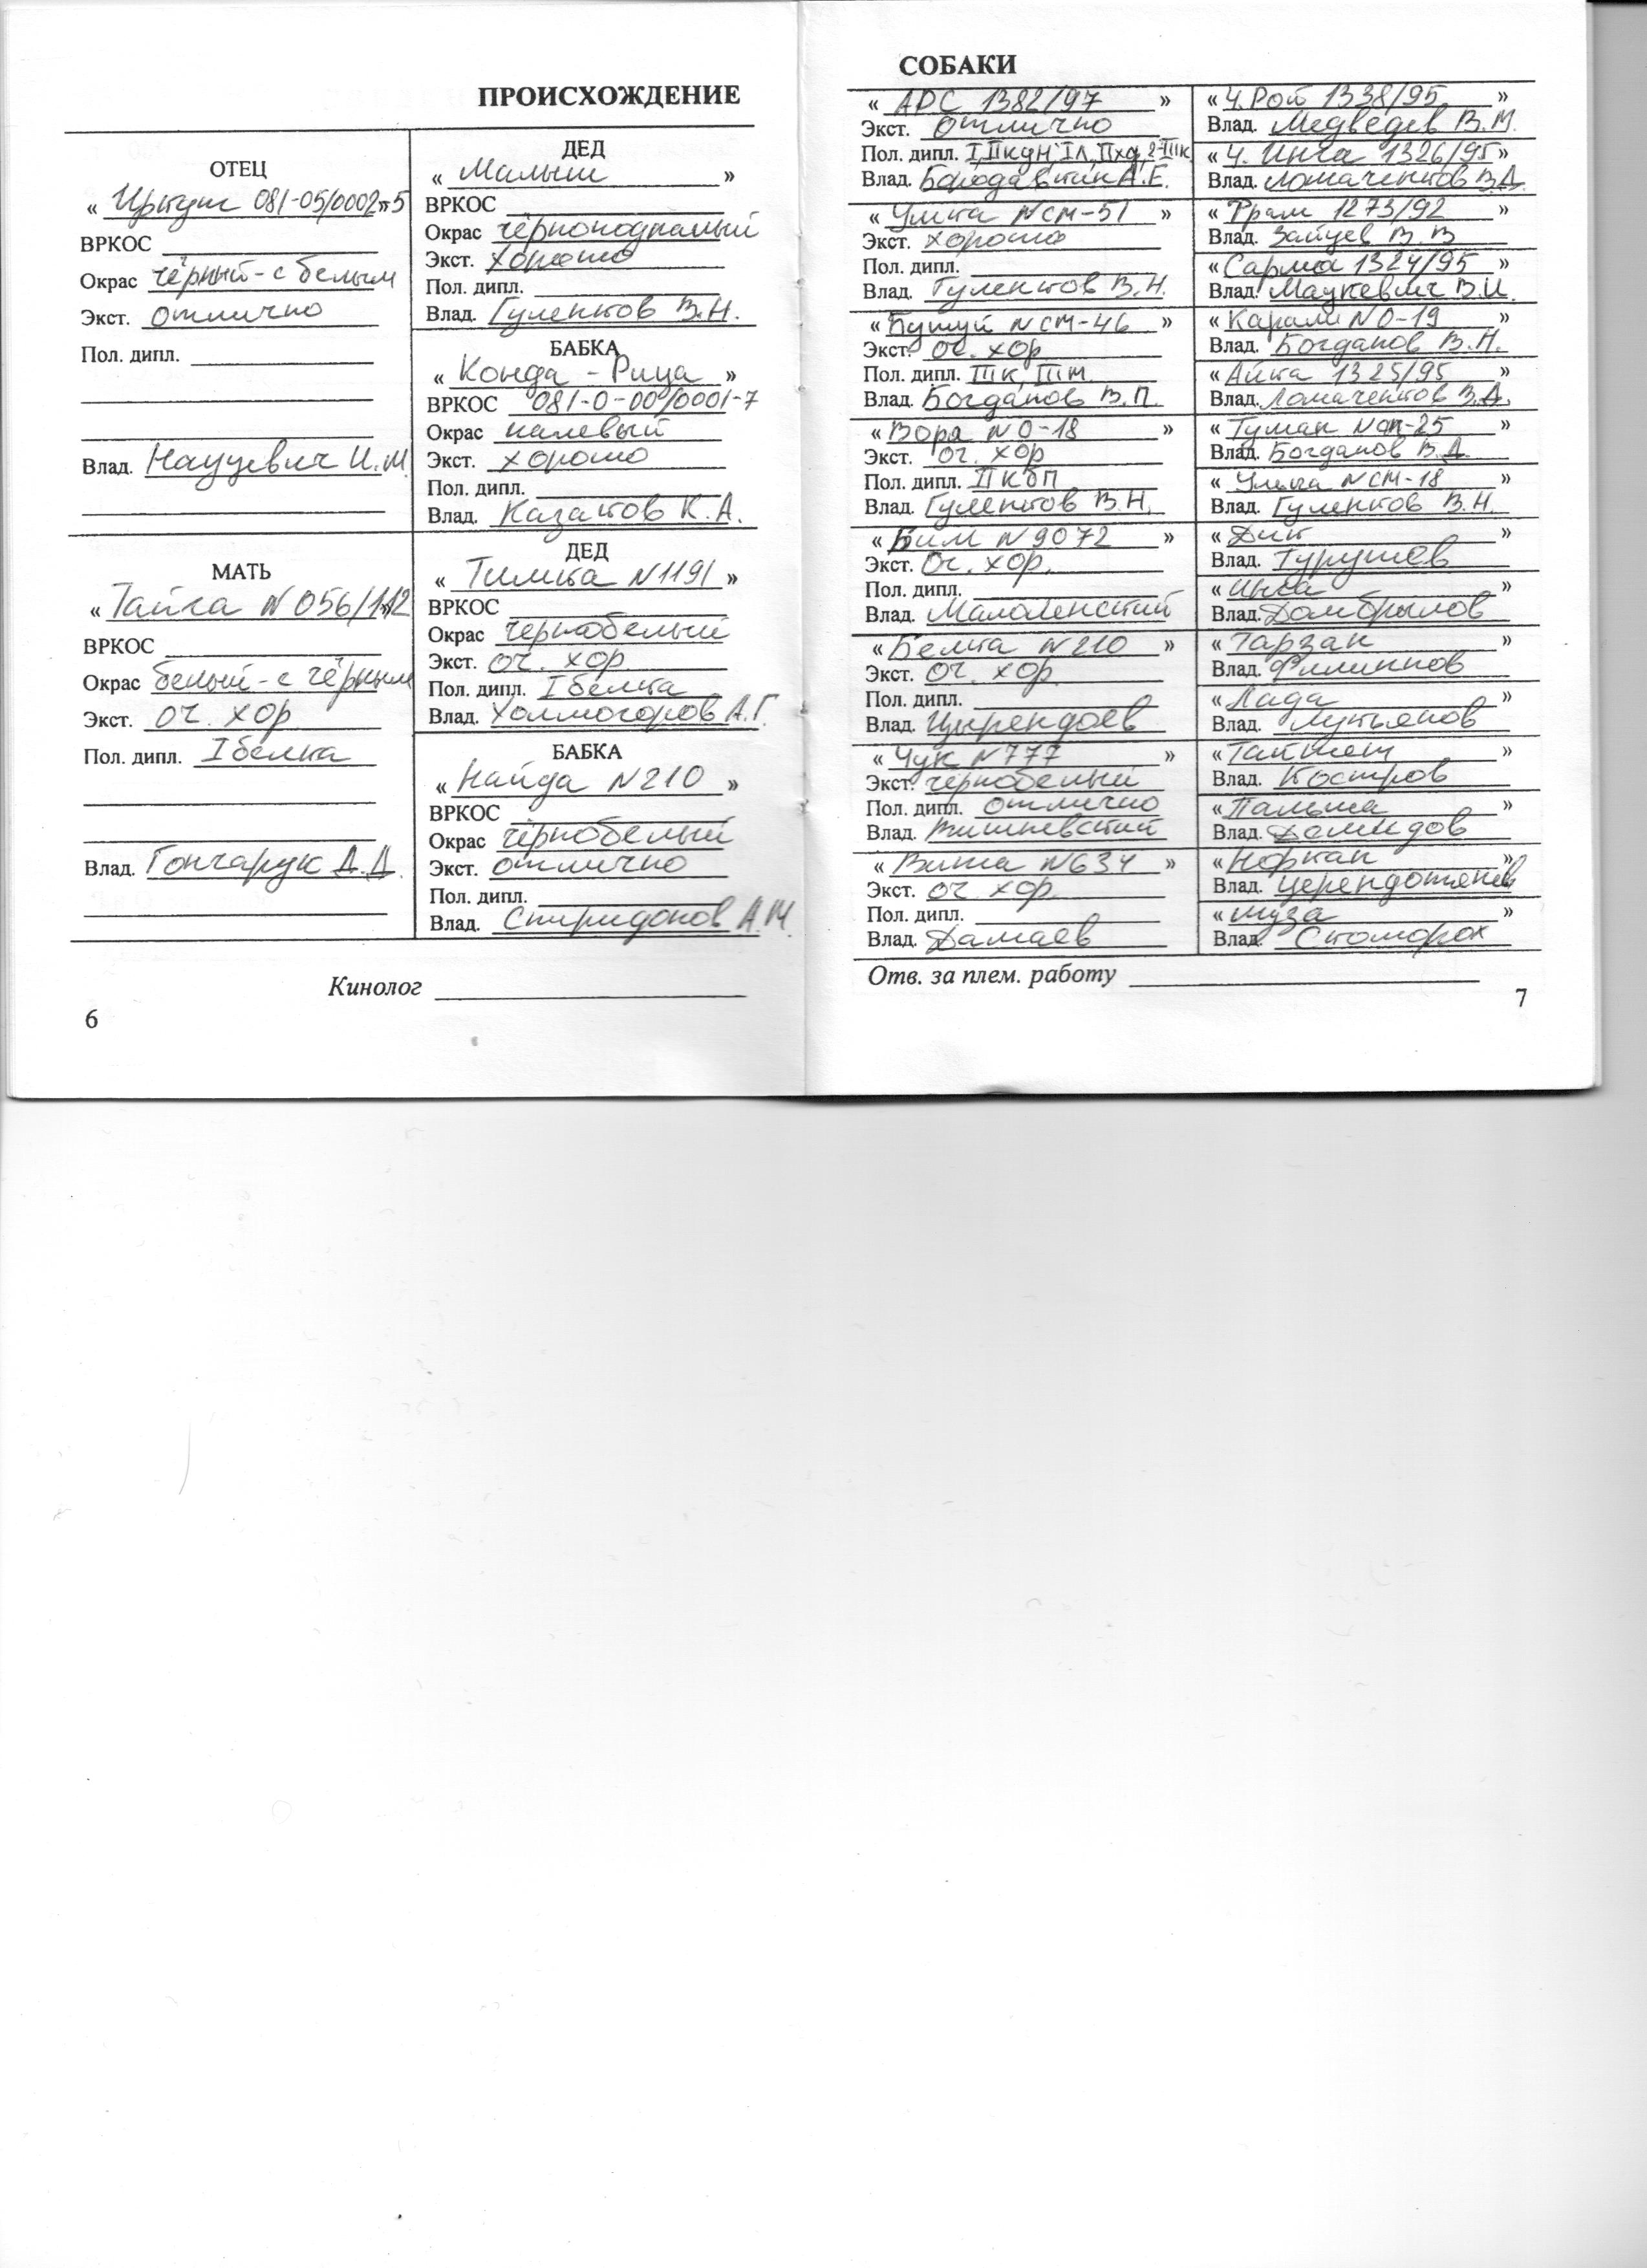 ПРОИСХОЖДЕНИЕ
ОТЕЦ
« Иркут 081-05/0002-5 »
ВРКОС
Окрас чёрный-с белым
Экст. отлично
Пол. дипл.
Влад. И.М.
ДЕД
« Малыш »
ВРКОС
Окрас чёрноподпалый
Экст. хорошо
Пол. дипл.
Влад. Гуленков В.Н.
БАБКА
« Конда - Рица »
ВРКОС 081-0-00/0001-7
Окрас палевый
Экст. хорошо
Пол. дипл.
Влад. Казаков К.А.
МАТЬ
« Тайга N 056/1-12 »
ВРКОС
Окрас белый-с чёрным
Экст. оч. хор
Пол. дипл. I белка
Влад. Гончарук Д.Д.
ДЕД
« Тимка N1191 »
ВРКОС
Окрас чернобелый
Экст. оч. хор
Пол. дипл. I белка
Влад. Холмогоров А.Г.
БАБКА
« Найда N210 »
ВРКОС
Окрас чёрнобелый
Экст. отлично
Пол. дипл.
Влад. Спиридонов А.М.
Кинолог
6
СОБАКИ
« АРС 1382/97 »
Экст. отлично
Пол. дипл.
Влад. А.Е.
« Умка NСМ-51 »
Экст. хорошо
Пол. дипл.
Влад. Гуленков В.Н.
« Бушуй NСМ-46 »
Экст. оч. хор
Пол. дипл. IIIк, IIIм.
Влад. Богданов В.П.
« Воря NО-18 »
Экст. оч. хор
Пол. дипл. II КбП
Влад. Гуленков В.Н.
« Бим N9072 »
Экст. Оч. хор.
Пол. дипл.
Влад.
« Белка N210 »
Экст. Оч. хор.
Пол. дипл.
Влад. Цырендоев
« Чук N777 »
Экст. чёрнобелый
Пол. дипл. отлично
Влад. Вишневский
« N634 »
Экст. оч. хор.
Пол. дипл.
Влад. Дамаев
« Ч. Рой 1338/95 »
Влад. Медведев В.М.
« Ч. Инга 1326/95 »
Влад. Ломаченков В.Д.
« Фрам 1273/92 »
Влад. Зайцев В.В
« Сарма 1324/95 »
Влад. Мацкевич В.И.
« Карам NО-19 »
Влад. Богданов В.Н.
« Айка 1325/95 »
Влад. Ломаченков В.Д.
« Туман »
Влад. Богданов В.Д.
« NСМ-18 »
Влад. Гуленков В.Н.
« Дик »
Влад. Турушев
« Инга »
Влад. Домбрылов
« Тарзан »
Влад. Филиппов
« Лада »
Влад. Лукьянов
« Тайшет »
Влад. Костров
« Пальма »
Влад. Демидов
« Норкан »
Влад.
« Муза »
Влад. Скоморох
Отв. за плем. работу
7